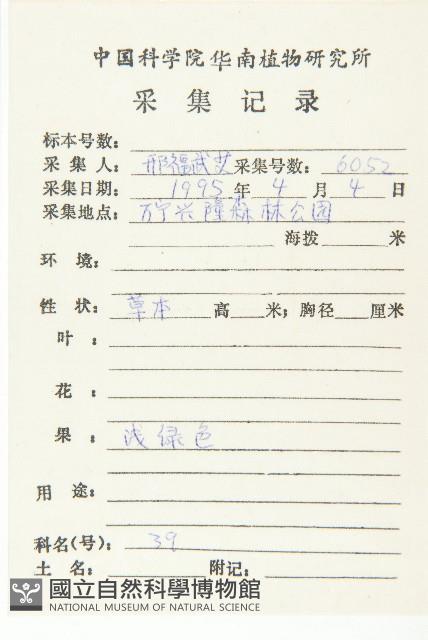 中国科学院华南植物研究所
采集记录
标本号数:
采集人: 邢福武 采集号数: 6052
采集日期: 1995年4月4日
采集地点: 万宁兴隆森林公园
海拨 米
环境:
性状: 草本 高 米; 胸径 厘米
叶:
花:
果: 浅绿色
用途:
科名(号): 39
土名: 附记:
國立自然科學博物館
NATIONAL MUSEUM OF NATURAL SCIENCE